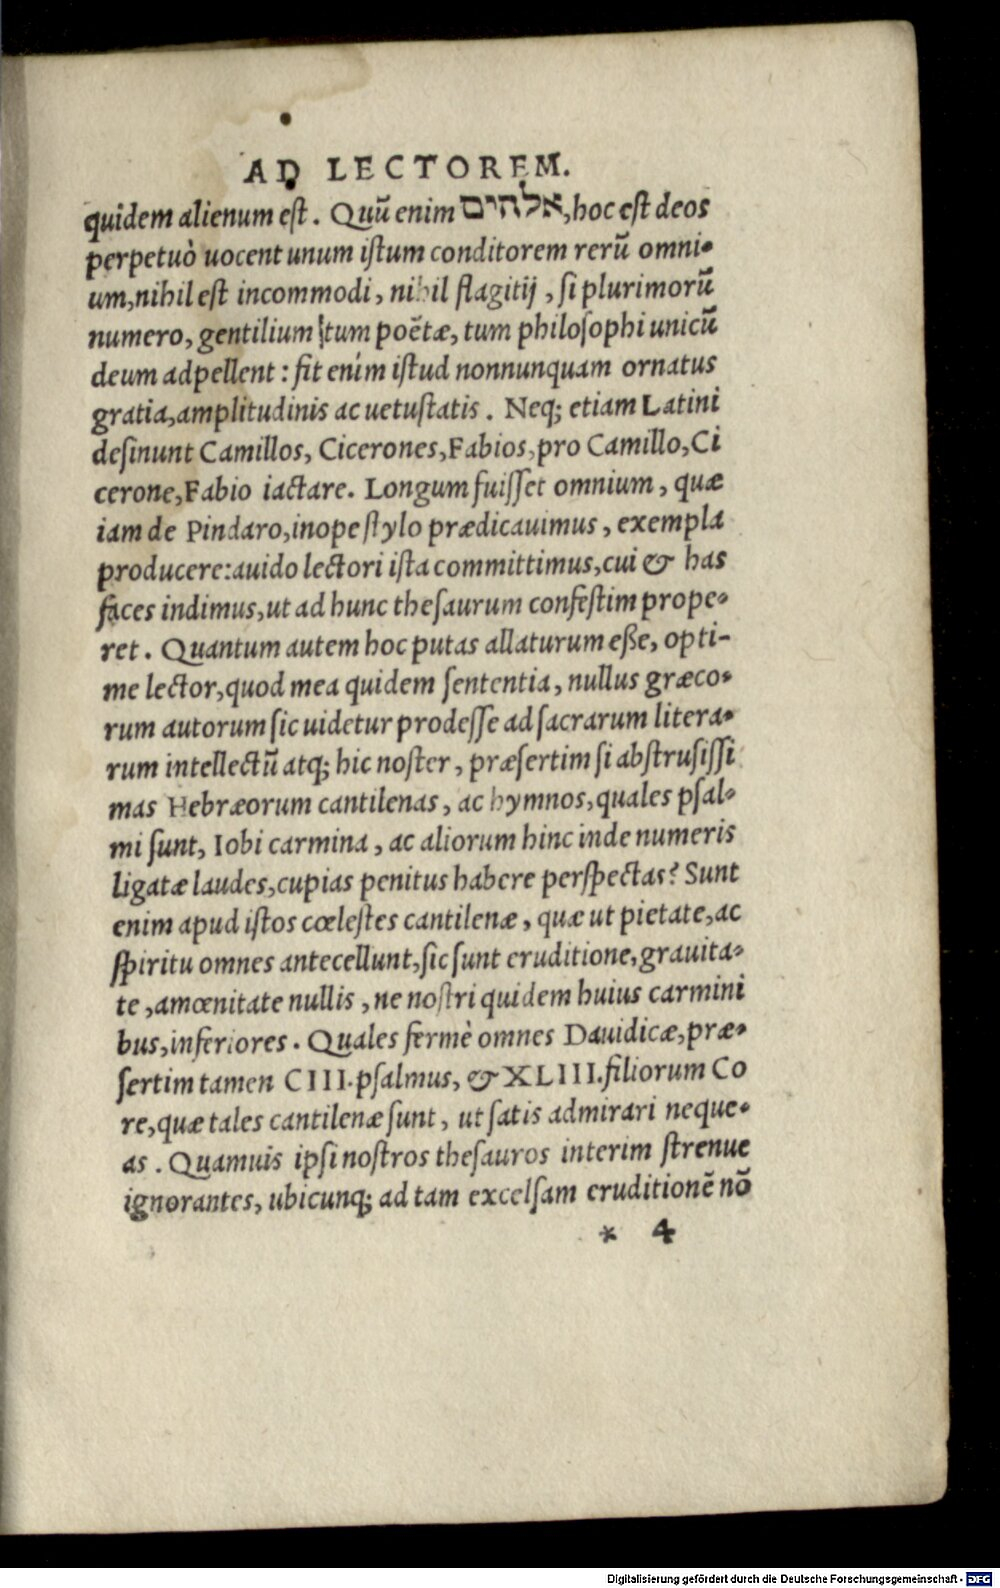 AD LECTOREM.
quidem alienum est. Quũ enim אלהים, hoc est deos
perpetuò uocent unum istum conditorem rerũ omni-
um, nihil est incommodi, nihil flagitij, si plurimorũ
numero, gentilium tum poëtæ, tum philosophi unicũ
deum adpellent: fit enim istud nonnunquam ornatus
gratia, amplitudinis ac uetustatis. Neq; etiam Latini
desinunt Camillos, Cicerones, Fabios, pro Camillo, Ci
cerone, Fabio iactare. Longum fuisset omnium, quæ
iam de Pindaro, inope stylo prædicauimus, exempla
producere: auido lectori ista committimus, cui & has
faces indimus, ut ad hunc thesaurum confestim prope-
ret. Quantum autem hoc putas allaturum eße, opti-
me lector, quod mea quidem sententia, nullus græco-
rum autorum sic uidetur prodesse ad sacrarum litera-
rum intellectũ atq; hic noster, præsertim si abstrusissi
mas Hebræorum cantilenas, ac hymnos, quales psal-
mi sunt, Iobi carmina, ac aliorum hinc inde numeris
ligatæ laudes, cupias penitus habere perspectas? Sunt
enim apud istos cœlestes cantilenæ, quæ ut pietate, ac
spiritu omnes antecellunt, sic sunt eruditione, grauita-
te, amœnitate nullis, ne nostri quidem huius carmini
bus, inferiores. Quales fermè omnes Dauidicæ, præ-
sertim tamen CIII. psalmus, & XLIII. filiorum Co
re, quæ tales cantilenæ sunt, ut satis admirari neque-
as. Quamuis ipsi nostros thesauros interim strenue
ignorantes, ubicunq; ad tam excelsam eruditionẽ nõ
* 4
Digitalisierung gefördert durch die Deutsche Forschungsgemeinschaft - DFG